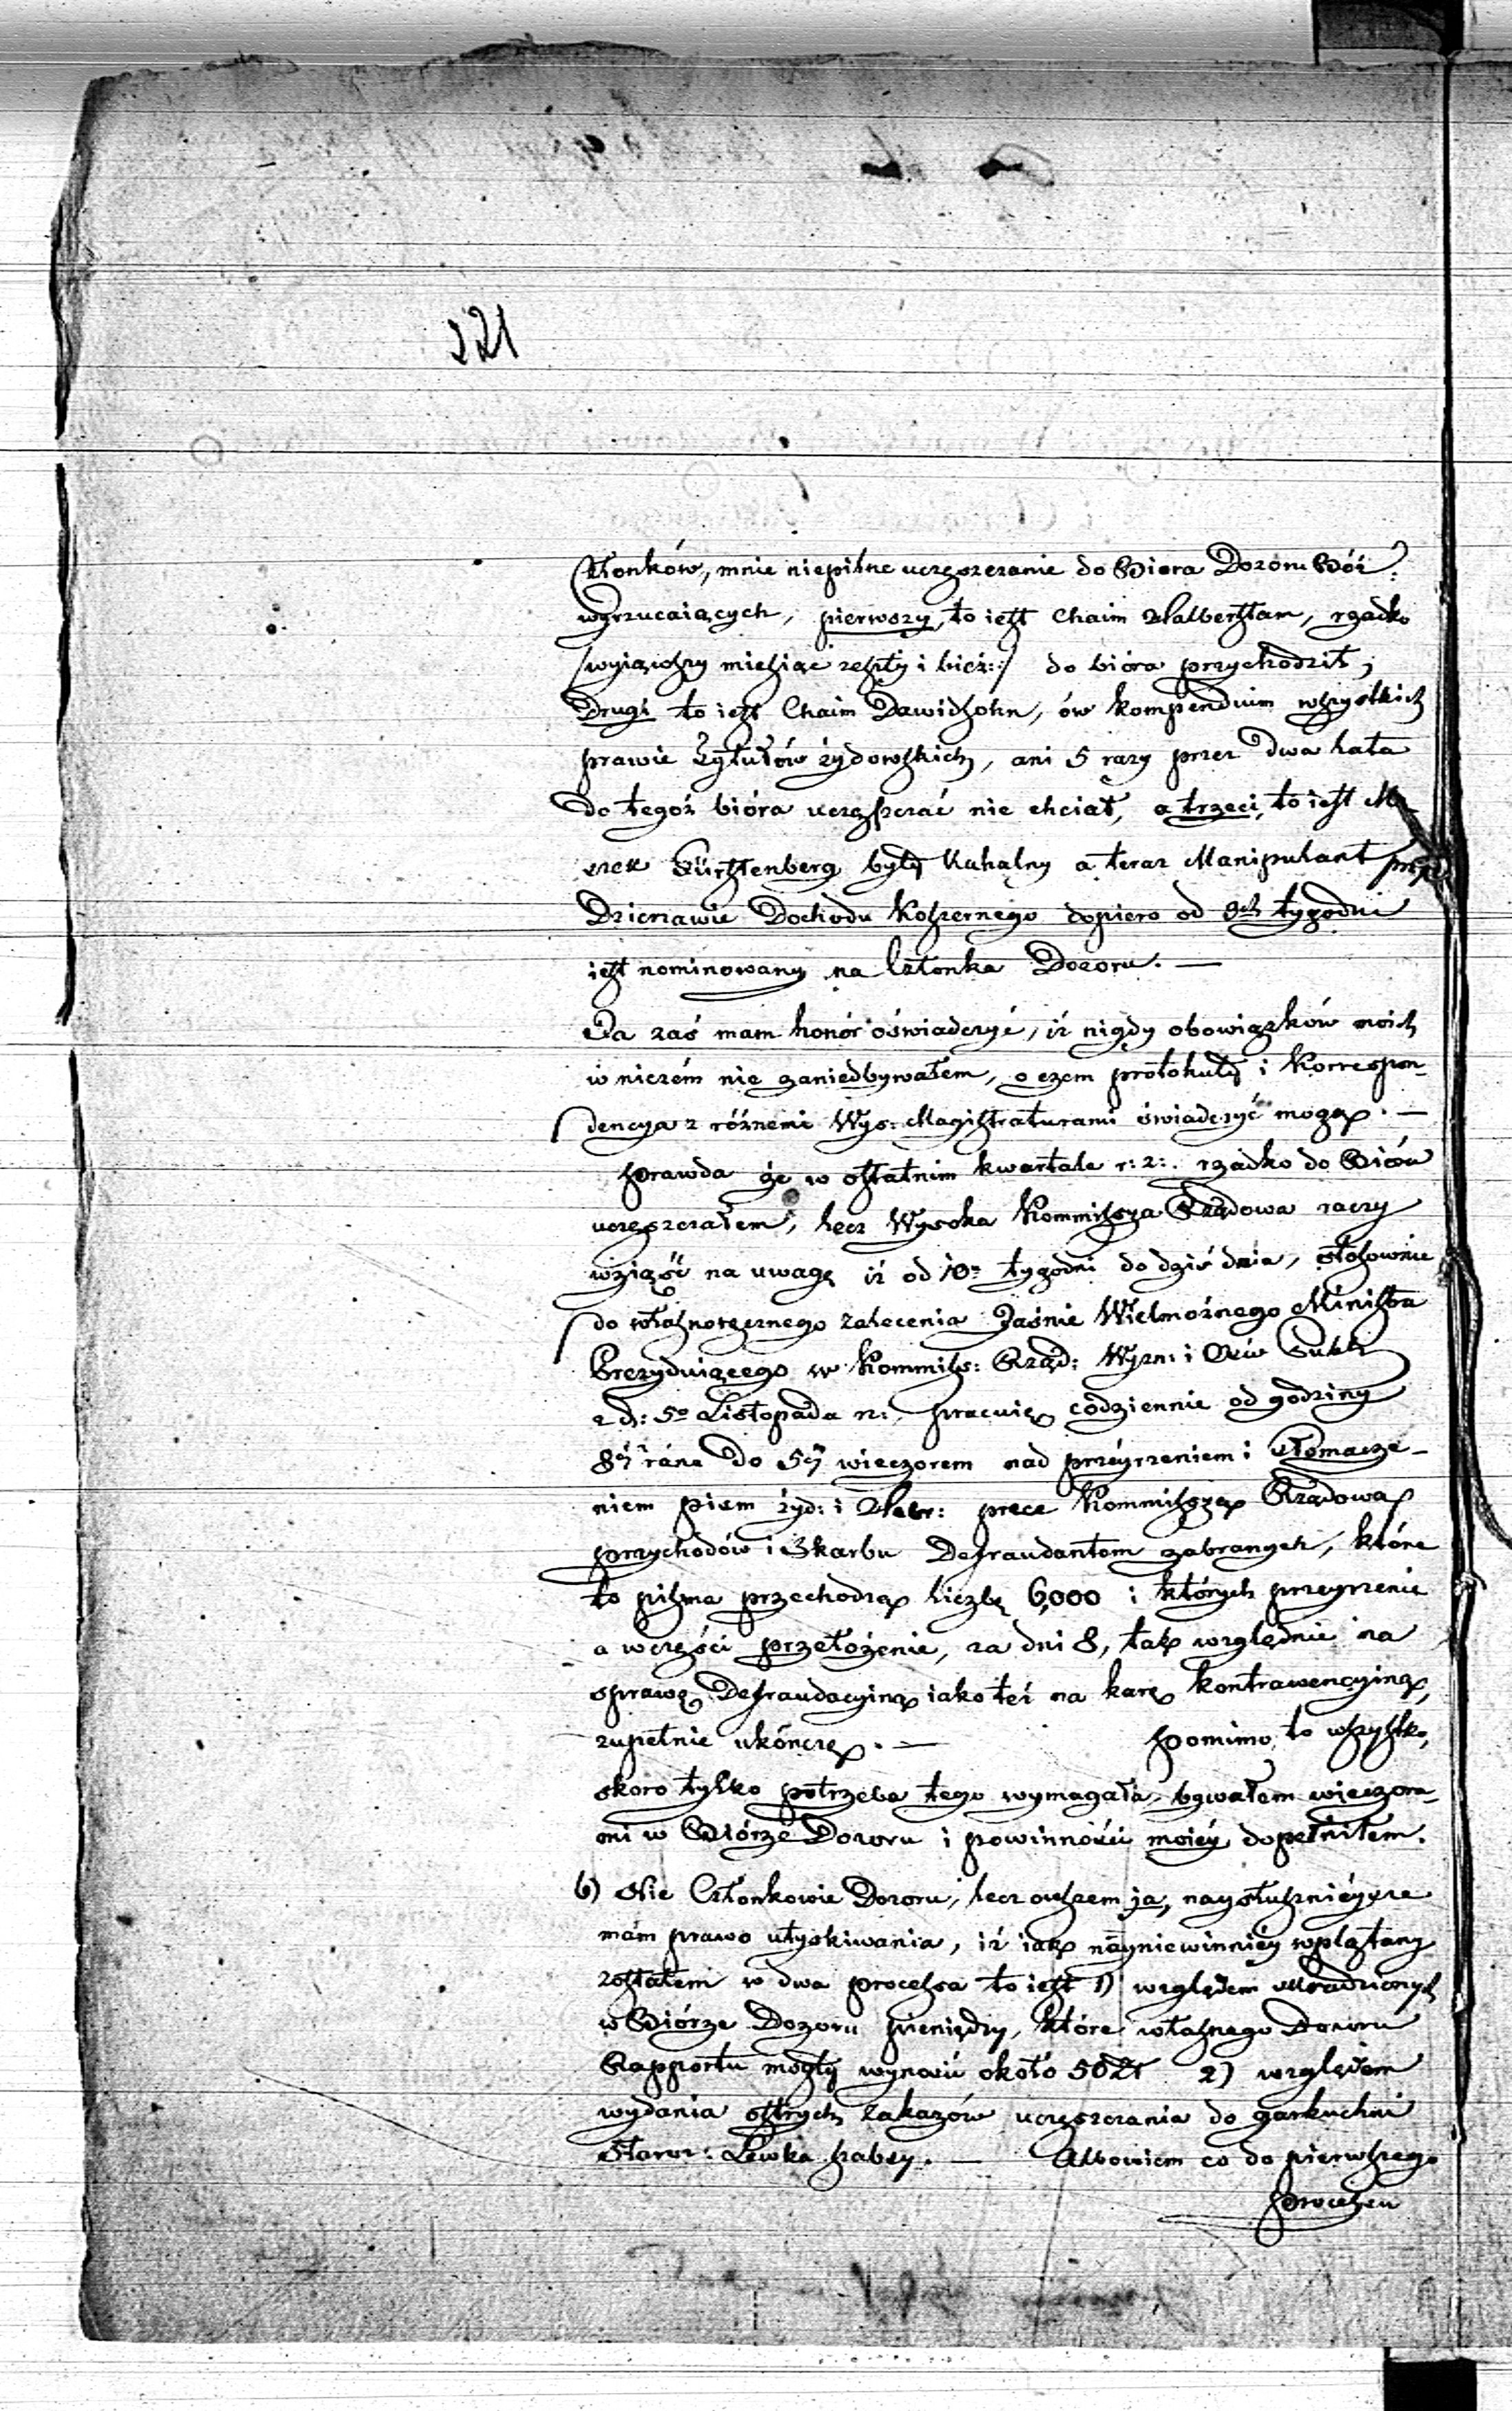 221
Członków, mnie niepilne uczęszczanie do Biora Dozoru Bóż:
wyrzucaiących, pierwszy, to iest Chaim Halberstam, rzadko
/wyiąwszy miesiąc zeszły i bież:/ do bióra przychodził;
Drugi to iest Chaim Dawidsohn, ów kompendium wszystkich
prawie tytułów żydowskich, ani 5 razy przez dwa lata
do tegoż bióra uczęszczać nie chciał, a trzeci, to iest M
Fürstenberg były Kahalny a teraz Manipulant przy
Dzierzawie Dochodu Koszernego dopiero od 9ch tygodni
iest nominowany na Członka Dozoru. —
Ja zaś mam honór oświadczyć, iż nigdy obowiązków moich
w niczém nie zaniedbywałem, o czem protokuły i Korrespon-
dencya z różnemi Wys: Magistraturami świadczyć mogą. —
Prawda że w ostatnim kwartale r: z: rzadko do Bióra
uczęszczałem, lecz Wysoka Kommissya Rządowa raczy
wziąść na uwagę iż od 10. tygodni do dziś dnia, stosownie
do własnoręcznego zalecenia Jaśnie Wielmożnego Ministra
Prezyduiącego w Kommiss: Rząd: Wyzn: i Ośw Publ:
z d: 5o Listopada r: pracuię codziennie od godziny
8éy ráno do 5éy wieczorem nad przéyrzeniem i tłomacze-
niem pism żyd: i Hebr: przez Kommissyą Rządową
przychodów i Skarbu Defraudantom zabranych, które
to pisma przechodzą liczbę 6,000 i których przeyrzenie
a wczęści przełożenie, za dni 8, tak względnie na
sprawę Defraudacyiną iako też na karę kontrawencyiną,
zupełnie ukończę. — Pomimo to wszystko,
skoro tylko potrzeba tego wymagała, bywałem wieczora-
mi w Biórze Dozoru i powinności moiéy dopełniłem.
6) Nie Członkowie Dozoru, lecz owszem ja, naysłuszniéysze
mám prawo utyskiwania, iż iak náyniewinniéy wplątany
zostałem w dwa processa to iest 1) względem ukradzionych
w Biórze Dozoru pieniędzy, które własnego Dozoru
Rapportu mogły wynosić około 50 Zł 2) względem
wydania ostrych zakazów uczęszczania do garkuchni
Staroz: Lewka Szabsy. — Albowiem co do pierwszego
Processu